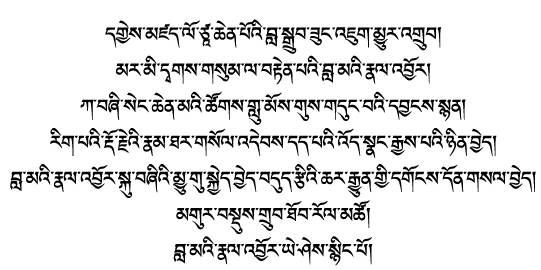 དགྱེས་མཛད་ལོ་ཙཱ་ཆེན་པོའི་བླ་སྒྲུབ་ཟུང་འཇུག་མྱུར་འགྲུབ།
མར་མི་དྭགས་གསུམ་ལ་བརྟེན་པའི་བླ་མའི་རྣལ་འབྱོར།
ཀ་བཞི་སེང་ཆེན་མའི་ཚོགས་གླུ་མོས་གུས་གདུང་བའི་དབྱངས་སྙན།
རིག་པའི་རྡོ་རྗེའི་རྣམ་ཐར་གསོལ་འདེབས་དད་པའི་འོད་སྣང་རྒྱས་པའི་ཉིན་བྱེད།
བླ་མའི་རྣལ་འབྱོར་སྐུ་བཞིའི་མྱུ་གུ་སྐྱེད་བྱེད་བདུད་རྩིའི་ཆར་རྒྱུན་གྱི་དགོངས་དོན་གསལ་བྱེད།
མགུར་བསྡུས་གྲུབ་ཐོབ་རོལ་མཚོ།
བླ་མའི་རྣལ་འབྱོར་ཡེ་ཤེས་སྙིང་པོ།